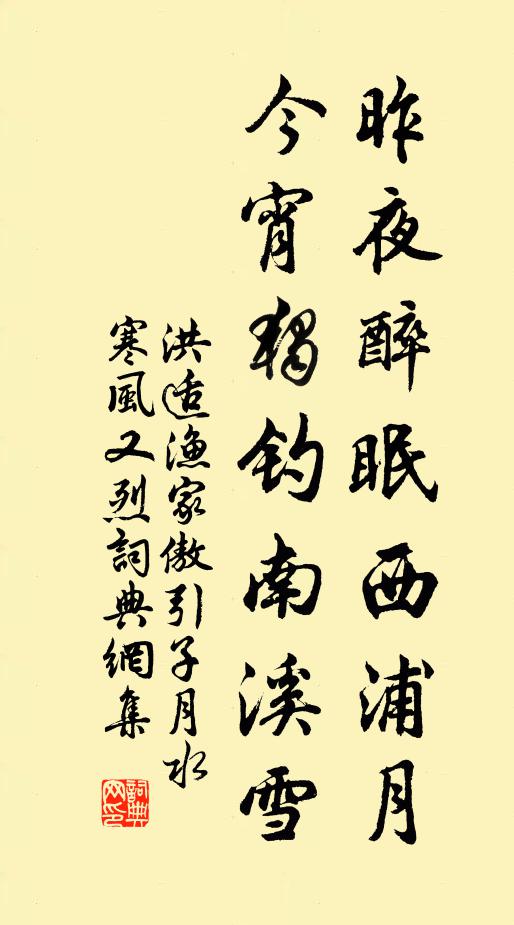 昨夜醉眠西浦月
今宵獨钓南溪雪
洪适渔家傲引子月水
寒風又烈詞典網集
詞典
网印